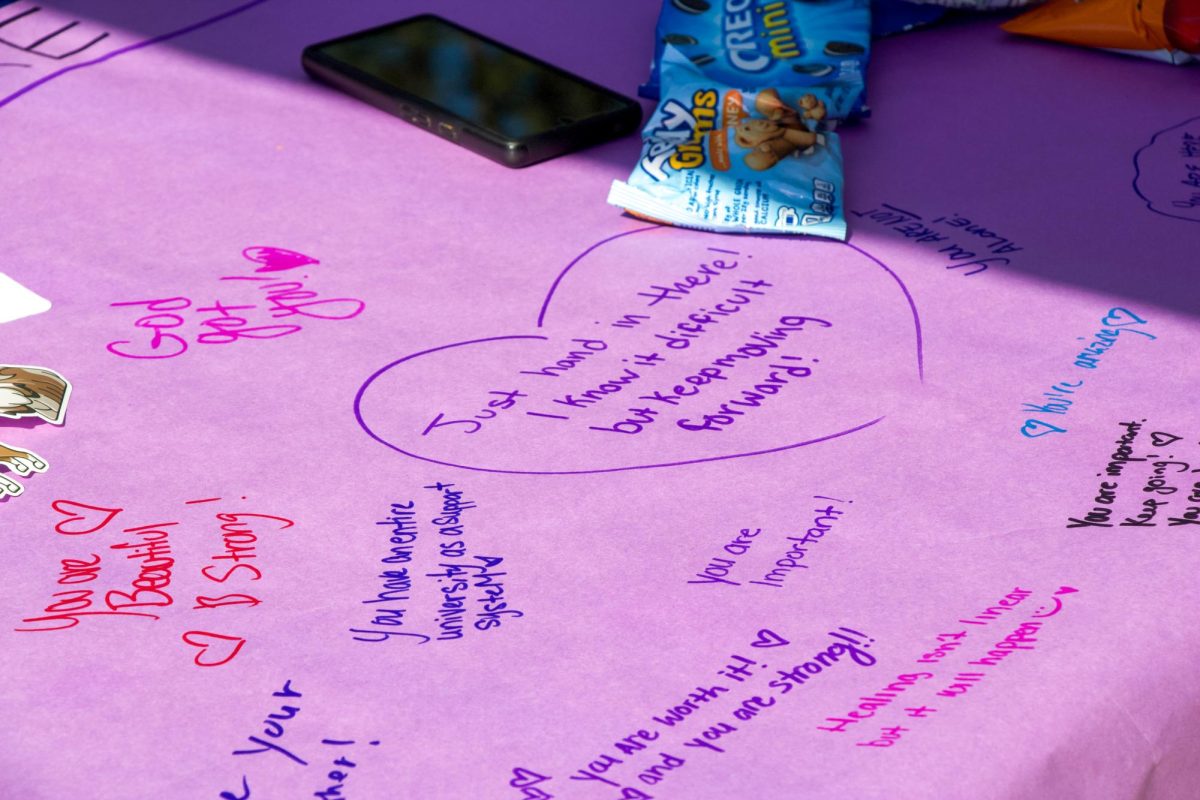 OREO
mini
Teddy
Grahams
HONEY
WHOLE GRAIN
CALCIUM
YOU ARE NOT
ALONE!
God
got
you!
Just hand in there!
I know it difficult
but keep moving
forward!
You're amazing
You are important.
Keep going!
You are
You are
Beautiful
B Strong!
You have an entire
university as a support
system
you are
important!
Healing isn't linear
but it will happen
you are worth it!
and you are strong!!
your